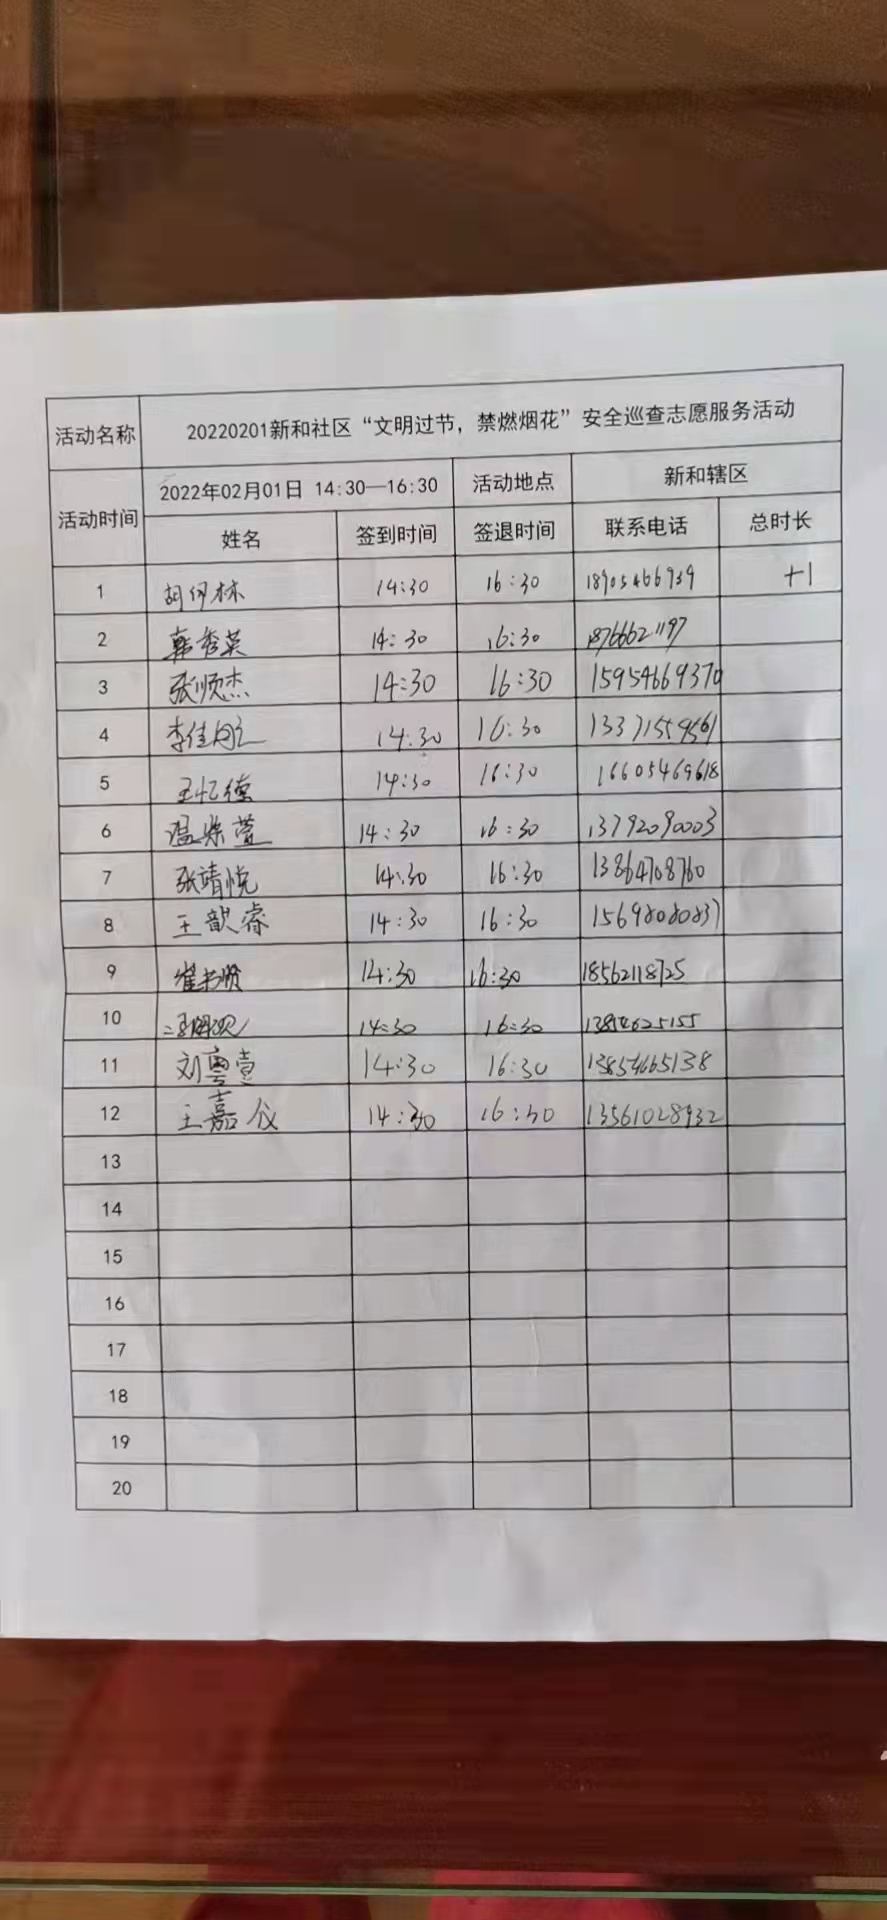 活动名称 20220201新和社区“文明过节，禁燃烟花”安全巡查志愿服务活动
活动时间 2022年02月01日 14:30—16:30 活动地点 新和辖区
姓名 签到时间 签退时间 联系电话 总时长
1 14:30 16:30 18905466939 +1
2 韩秀英 14:30 16:30 18766621197
3 张顺杰 14:30 16:30 15954669370
4 14:30 16:30 13371559561
5 王忆德 14:30 16:30 16605469618
6 14:30 16:30 13792090003
7 张靖悦 14:30 16:30 13864708760
8 王歆睿 14:30 16:30 15698080837
9 14:30 16:30 18562118725
10 14:30 16:30 13854625155
11 14:30 16:30 13854665138
12 王嘉仪 14:30 16:30 13561028932
13
14
15
16
17
18
19
20